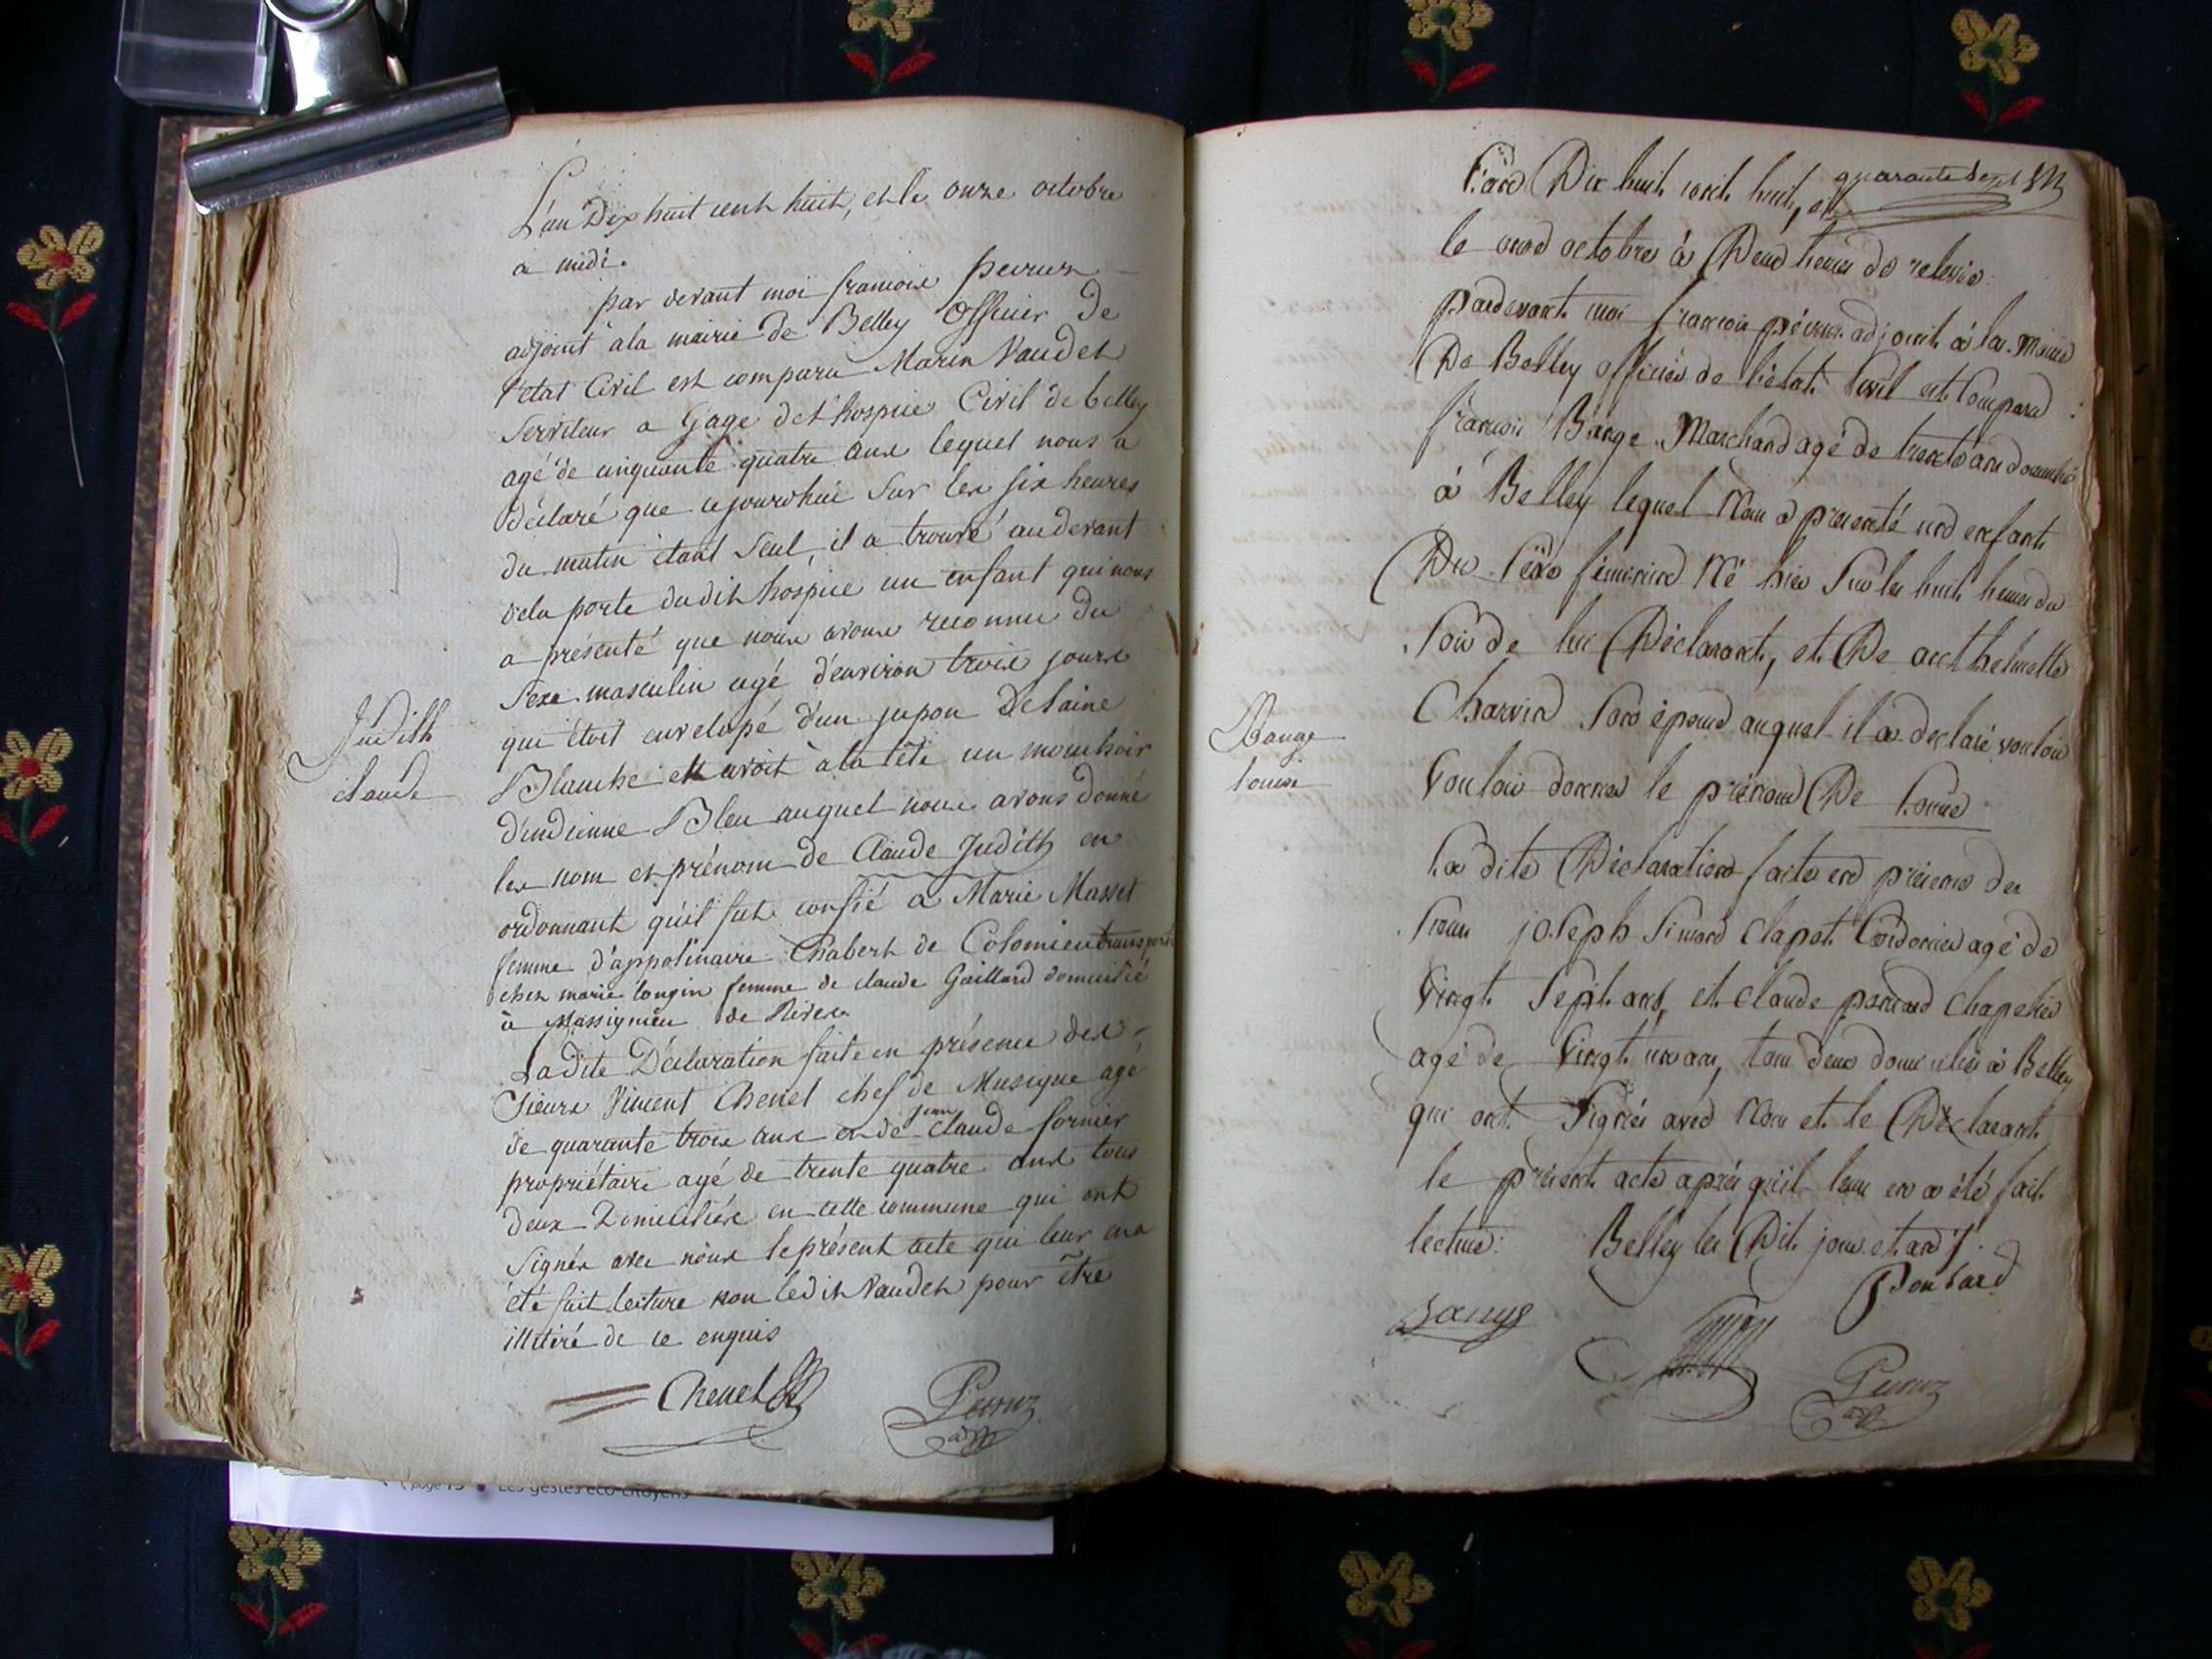 L'an Dix huit cent huit, et le onze octobre
a midi.
par devant moi francois peurux
adjoint a la mairie de Belley Officier de
l'etat Civil est comparu Marin Vaudet
Serviteur a Gage de l'hospice Civil de belley
agé de cinquante quatre ans lequel nous a
déclaré que cejourdhui Sur les six heures
du matin étant Seul, il a trouvé audevant
dela porte dudit hospice un enfant qui nous
a présenté que nous avons reconnu du
Sexe masculin agé d'environ trois jours
qui étoit envelopé d'un jupon De laine
Blanche et avoit à la tête un mouchoir
d'indienne Bleu auquel nous avons donné
les nom et prénom de Claude Judith en
ordonnant qu'il fut confié a Marie Masset
femme d'appolinaire Chabert de Colomieu transporté
chez marie longin femme de claude Gaillard domicilié
à Massignieu de Rives.
La dite Déclaration faite en présence des
Sieurs Vincent Chenel chef de Musique agé
de quarante trois ans et de jean claude fornier
propriétaire agé de trente quatre ans tous
deux Domiciliés en cette commune qui ont
Signés avec nous le présent acte qui leur en a
été fait lecture non ledit Vaudet pour être
illitiré de ce enquis
Chenel
Judith
claude
quarante Sept
L'an Dix huit cent huit, et
le onze octobre à Deux heures de relevée
pardevant moi francois adjoint à la Mairie
De Belley officier de l'état Civil est Comparu
françois Bange Marchand agé de trente ans domicilié
à Belley lequel Nous a présenté une enfant
Du Sexe féminin Né hier Sur les huit heures du
Soir de lui Déclarant, et De anthelmette
Charvin Son épouse auquel il a déclaré vouloir
Vouloir donner le prénom De Louise
La dite Déclaration faite en présence des
Sieurs joseph Simond Clapot Cordonier agé de
Vingt Sept ans, et claude ponsard Chapelier
agé de Vingt un ans, tous deux domiciliés à Belley
qui ont Signés avec Nous et le Déclarant
le présent acte après qu'il leur en a été fait
lecture. Belley les Dit jour et an
Ponsard
Bange
Bange
louise
page 15 Les gestes éco-citoyens